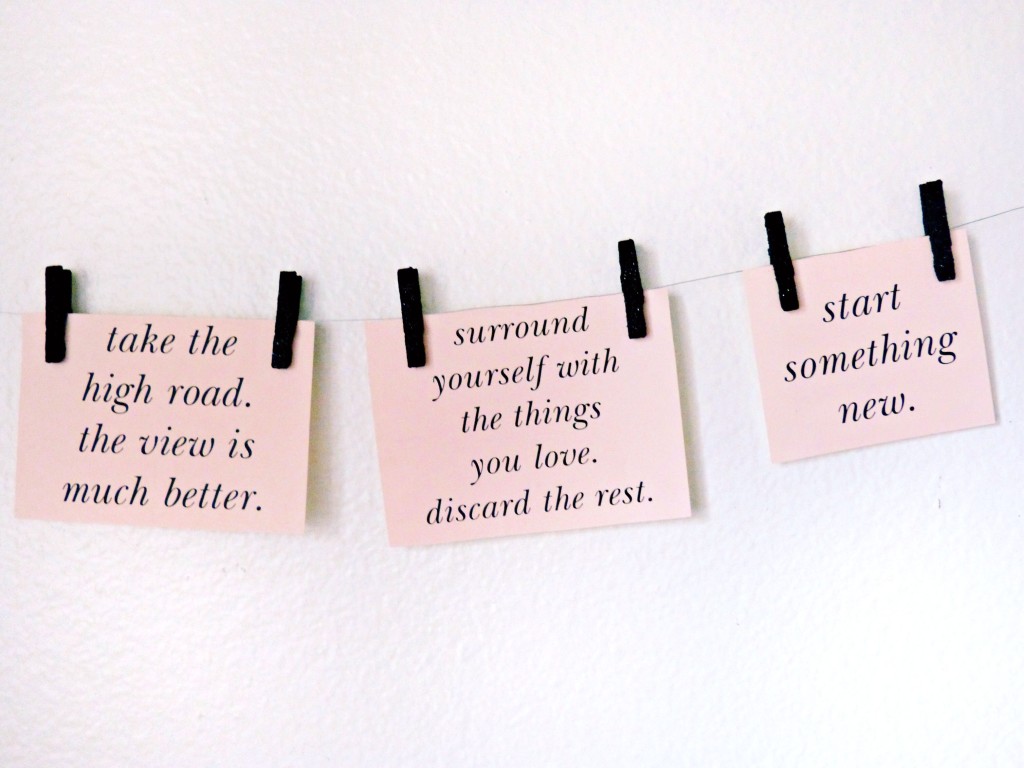 take the
high road.
the view is
much better.
surround
yourself with
the things
you love.
discard the rest.
start
something
new.